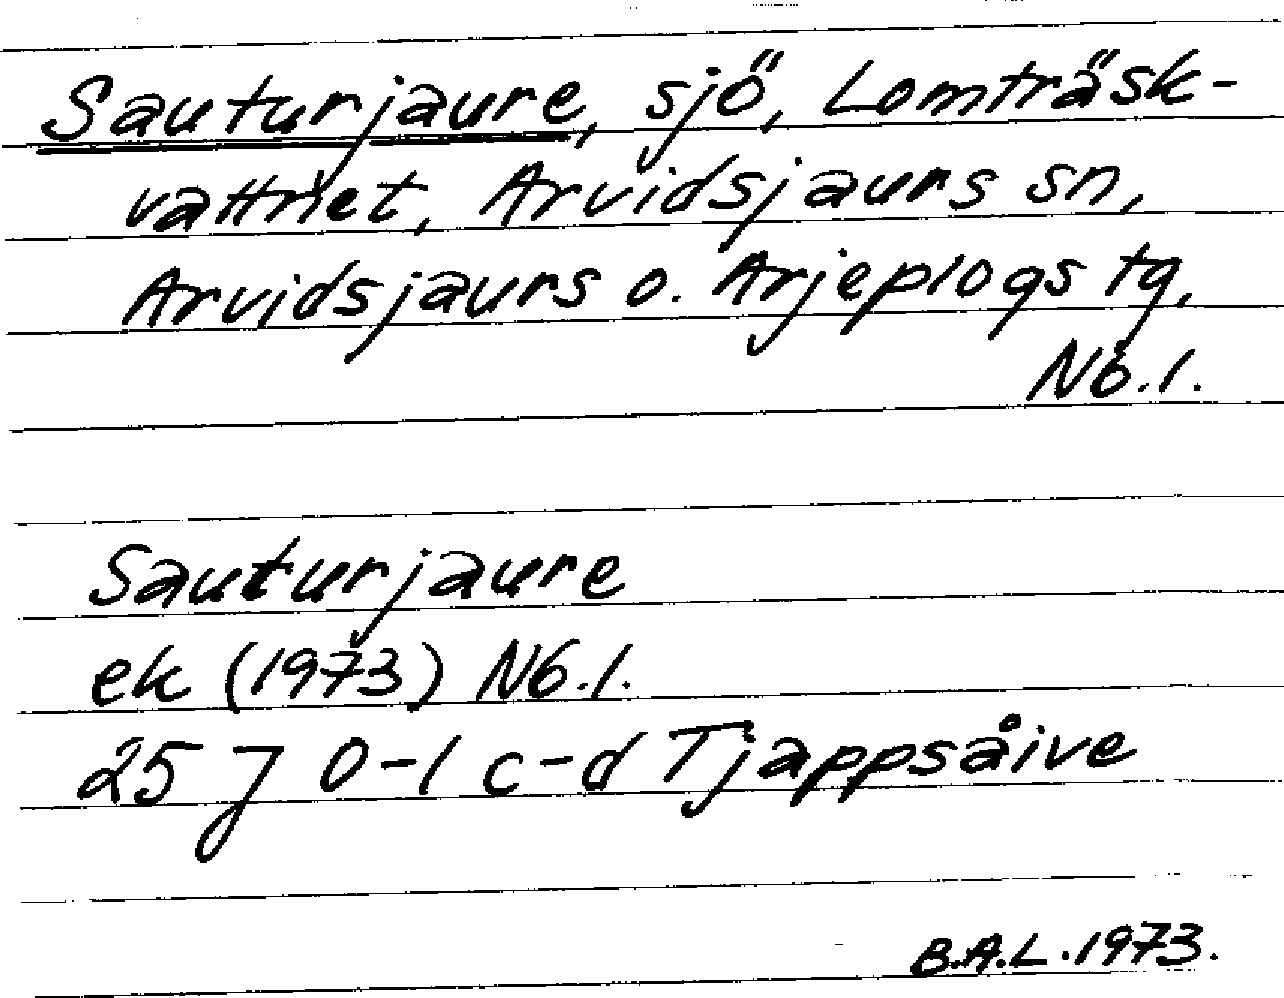 Sauturjaure, sjö, Lomträsk-
vattnet, Arvidsjaurs sn,
Arvidsjaurs o. Arjeplogs tg,
Nb.l.
Sauturjaure
ek (1973) Nb.l.
25 J 0-1 c-d Tjappsåive
B.A.L. 1973.